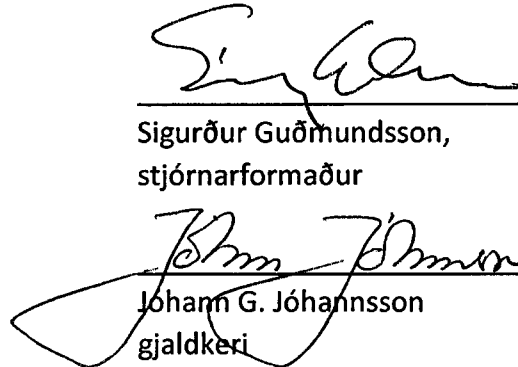 Sigurður Guðmundsson,
stjórnarformaður
Jóhann G. Jóhannsson
gjaldkeri